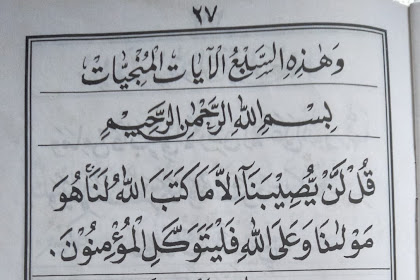 ٢٧
وَهٰذِهِ السَّبْعُ الْآيَاتِ الْمُنْجِيَاتِ
بِسْمِ اللهِ الرَّحْمٰنِ الرَّحِيْمِ
قُلْ لَّنْ يُّصِيْبَنَآ اِلَّا مَا كَتَبَ اللهُ لَنَا هُوَ
مَوْلٰىنَا وَعَلَى اللهِ فَلْيَتَوَكَّلِ الْمُؤْمِنُوْنَ.